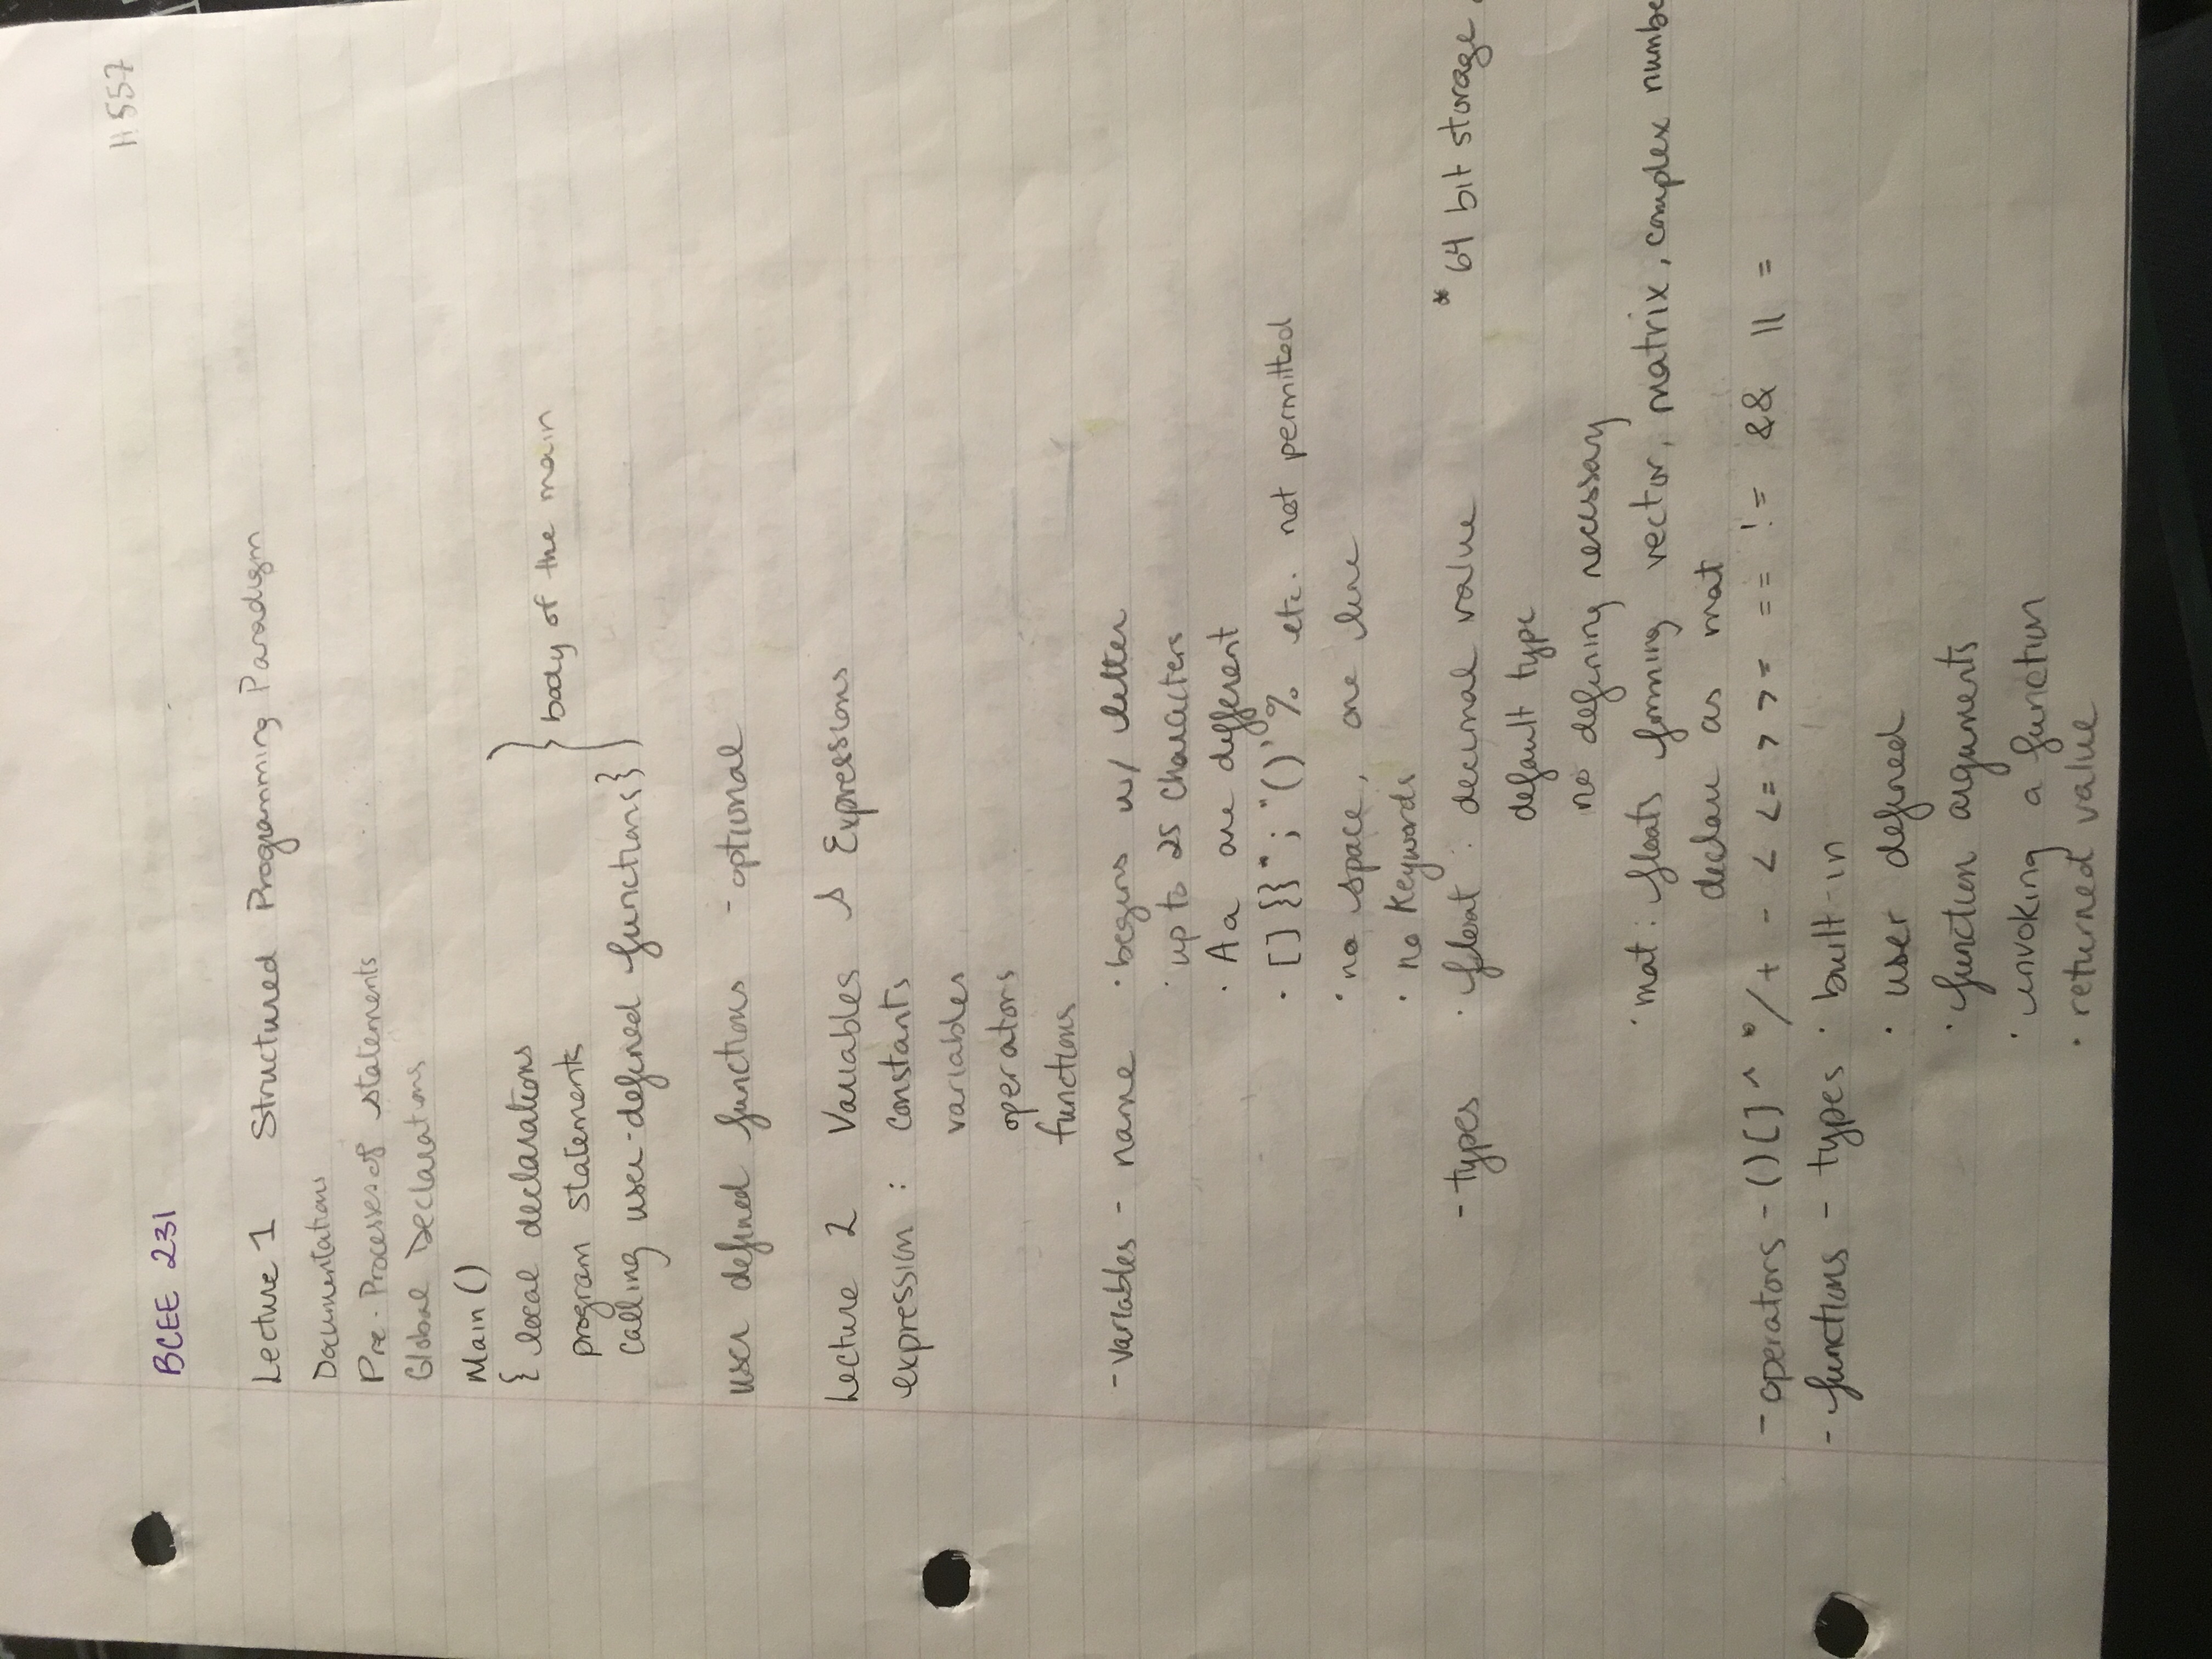 11557
BCEE 231
Lecture 1 Structured Programming Paradigm
Documentations
Pre-Processes of statements
Global Declarations
Main ()
{ local declarations
program statements } body of the main
calling user-defined functions}
user defined functions - optional
Lecture 2 Variables & Expressions
expression : constants
variables
operators
functions
- variables - name · begins w/ letter
· up to 25 characters
· A a are different
· [ ] { } * ; " ( ) ' % etc. not permitted
· no space, one line
· no keywords
- types · float : decimal value * 64 bit storage
default type
no defining necessary
· mat : floats forming vector, matrix, complex numbe
declare as mat
- operators - ( ) [ ] ^ * / + - < <= > >= == != && || =
- functions - types · built-in
· user defined
· function arguments
· invoking a function
· returned value